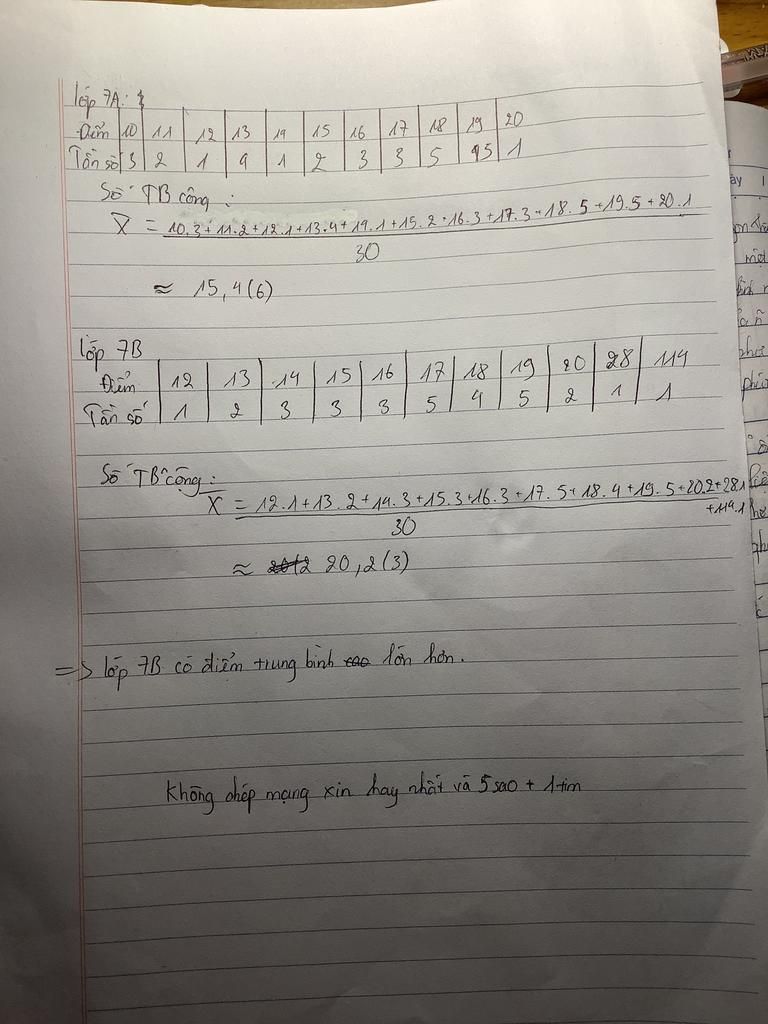 lớp 7A: {
Điểm 10 11 12 13 14 15 16 17 18 19 20
Tần số 3 2 1 4 1 2 3 3 5 5 1
Số TB cộng:
X̄ = 10.3+11.2+12.1+13.4+19.1+15.2+16.3+17.3+18.5+19.5+20.1
30
≈ 15,4(6)
lớp 7B
Điểm 12 13 14 15 16 17 18 19 20 28 114
Tần số 1 2 3 3 3 5 4 5 2 1 1
Số TB cộng:
X̄ = 12.1+13.2+14.3+15.3+16.3+17.5+18.4+19.5+20.2+28.1
+114.1
30
≈ 20,2(3)
=> lớp 7B có điểm trung bình lớn hơn.
Không chép mạng xin hay nhất và 5 sao + 1 tim